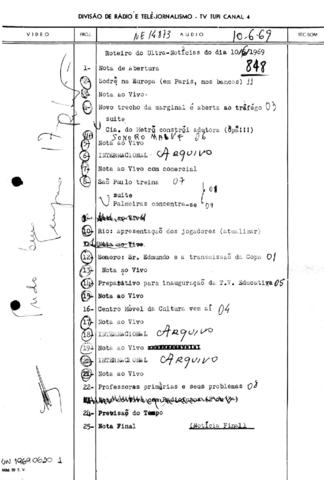 DIVISÃO DE RÁDIO E TELE-JORNALISMO - TV TUPI CANAL 4
VIDEO PROJ. NE 14873 AUDIO 10-6-69 TEC SOM.
Roteiro do Ultra-Notícias do dia 10/6/1969
1- Nota de abertura 848
2- Sodré na Europa (em Paris, nos bancos) 11
Nota ao Vivo
4- Novo trecho da marginal é aberta ao tráfego 03
suite
Cia. do Metrô constrói adutora
SONORO 06
5- Nota ao Vivo
6- INTERNACIONAL ARQUIVO
7- Nota ao Vivo com comercial
8- São Paulo treina 07
suite 08
Palmeiras concentra-se 09
10- Rio: apresentação dos jogadores (atualizar)
Nota ao Vivo
12- Sonoro: Sr. Edmundo e a transmissão da Copa 01
13- Nota ao Vivo
14- Preparativo para inauguração da T.V. Educativa 05
15- Nota ao Vivo
16- Centro Móvel da Cultura vem aí 04
17- Nota ao Vivo
18- INTERNACIONAL ARQUIVO
19- Nota ao Vivo
20- INTERNACIONAL ARQUIVO
21- Nota ao Vivo
22- Professoras primárias e seus problemas 08
24- Previsão do Tempo
25- Nota Final (Notícia Final)